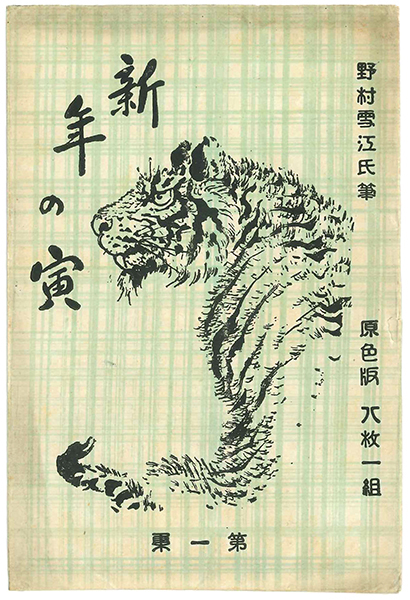 野村雪江氏筆
原色版 八枚一組
新年の寅
第一東